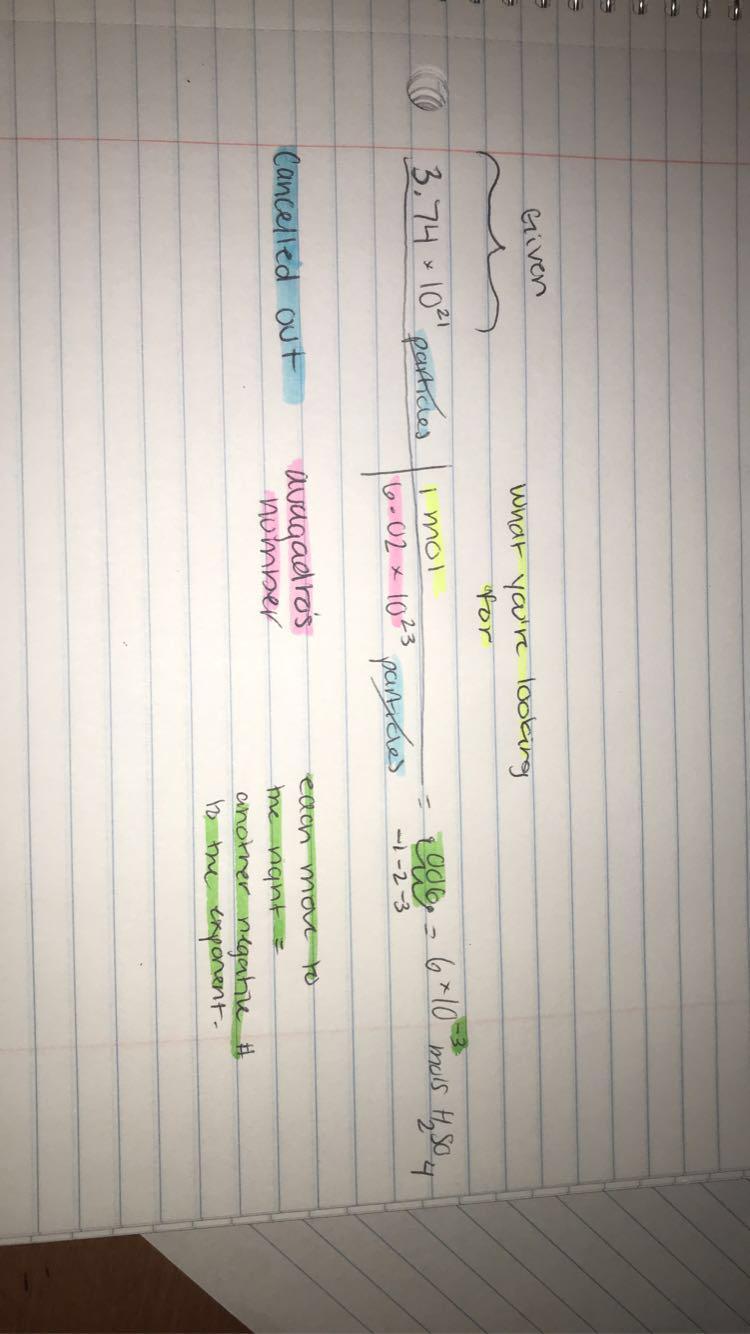 Given
What you're looking
for
3.74 × 10²¹ particles | 1 mol
6.02 × 10²³ particles
= .006 = 6 × 10⁻³ mols H₂SO₄
-1 -2 -3
Cancelled out
avagadro's
number
each move to
the right =
another negative #
to the exponent.